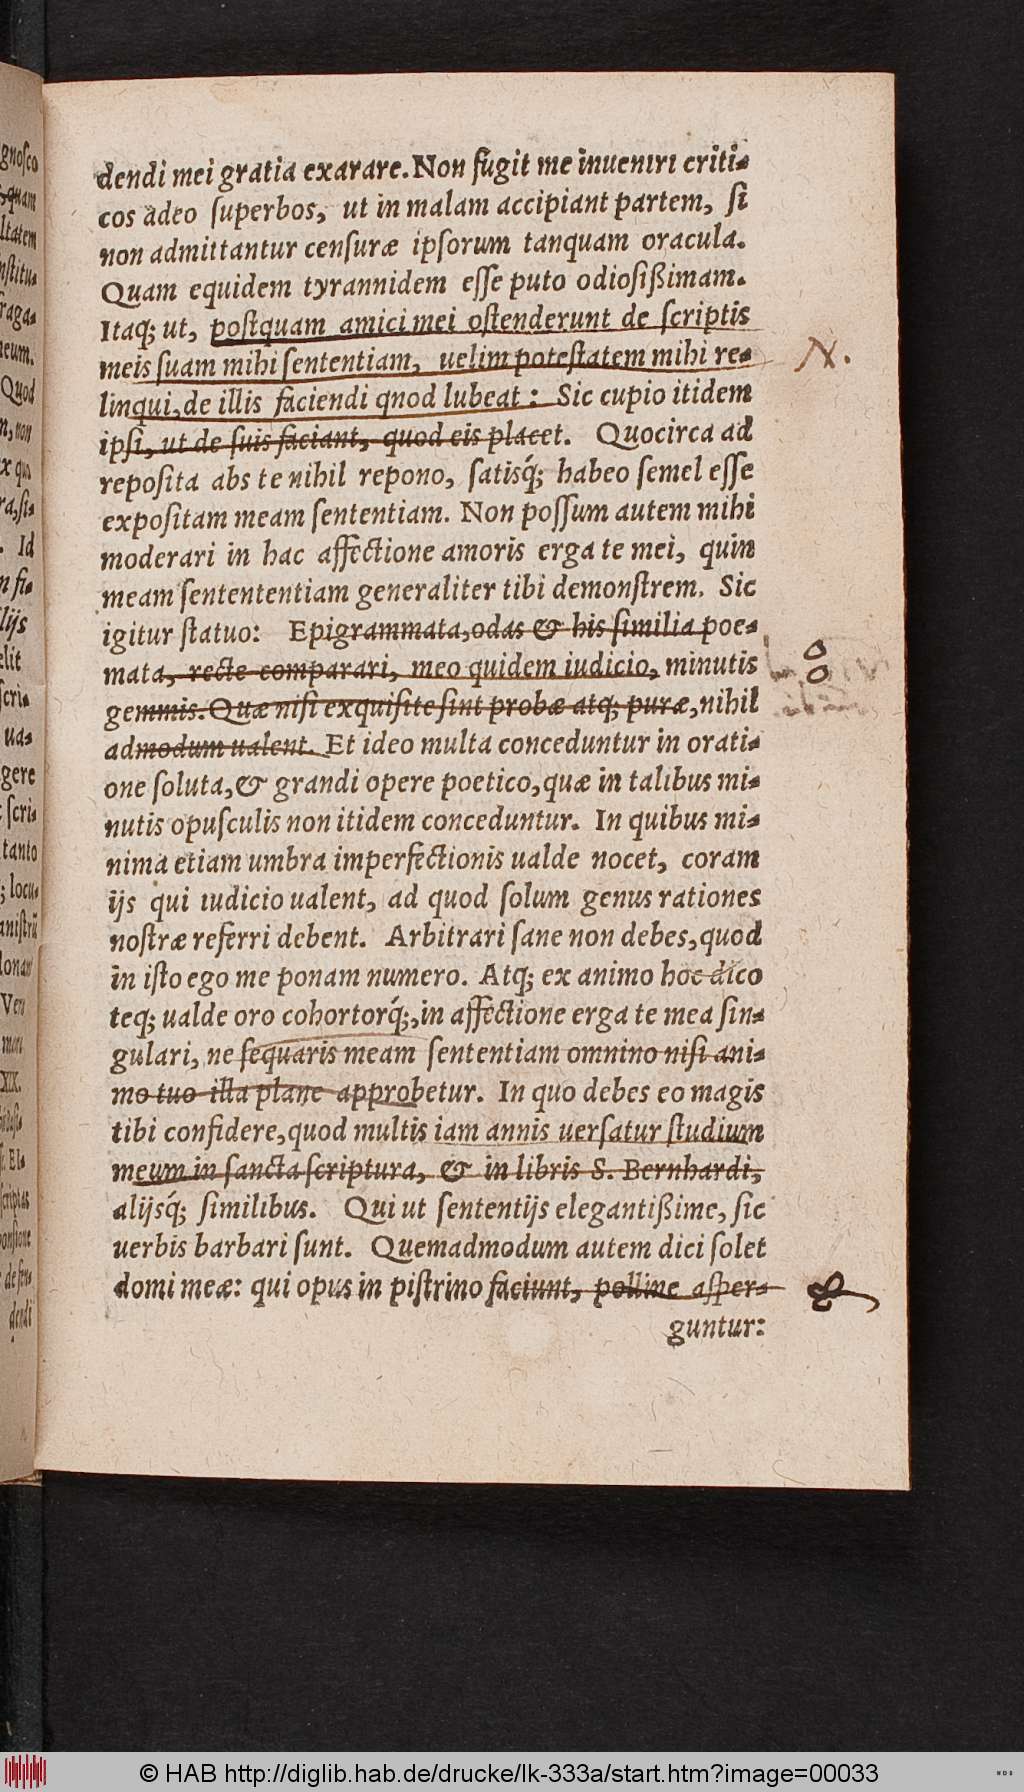 dendi mei gratia exarare. Non fugit me inueniri criti-
cos adeo superbos, ut in malam accipiant partem, si
non admittantur censuræ ipsorum tanquam oracula.
Quam equidem tyrannidem esse puto odiosißimam.
Itaq; ut, postquam amici mei ostenderunt de scriptis
meis suam mihi sententiam, uelim potestatem mihi re-
linqui, de illis faciendi qnod lubeat: Sic cupio itidem
ipsi, ut de suis faciant, quod eis placet. Quocirca ad
reposita abs te nihil repono, satisq́; habeo semel esse
expositam meam sententiam. Non possum autem mihi
moderari in hac affectione amoris erga te mei, quin
meam sentententiam generaliter tibi demonstrem. Sic
igitur statuo: Epigrammata, odas & his similia poe-
mata, recte comparari, meo quidem iudicio, minutis
gemmis. Quæ nisi exquisite sint probæ atq; puræ, nihil
admodum ualent. Et ideo multa conceduntur in orati-
one soluta, & grandi opere poetico, quæ in talibus mi-
nutis opusculis non itidem conceduntur. In quibus mi-
nima etiam umbra imperfectionis ualde nocet, coram
ijs qui iudicio ualent, ad quod solum genus rationes
nostræ referri debent. Arbitrari sane non debes, quod
in isto ego me ponam numero. Atq; ex animo hoc dico
teq; ualde oro cohortorq́;, in affectione erga te mea sin-
gulari, ne sequaris meam sententiam omnino nisi ani-
mo tuo illa plane approbetur. In quo debes eo magis
tibi confidere, quod multis iam annis uersatur studium
meum in sancta scriptura, & in libris S. Bernhardi,
alijsq́; similibus. Qui ut sententijs elegantißime, sic
uerbis barbari sunt. Quemadmodum autem dici solet
domi meæ: qui opus in pistrino faciunt, polline asper-
guntur:
N.
gnosco
quam
ltatem
nstitu-
raga-
neum.
Quod
m, non
ex quo
ra, si-
. Id
n fi-
lijs
elit
scri-
ua-
gere
scri-
tanto
; locu-
anistrũ
Vero
XIX.
El-
scriptas
de fen-
dendi
© HAB http://diglib.hab.de/drucke/lk-333a/start.htm?image=00033